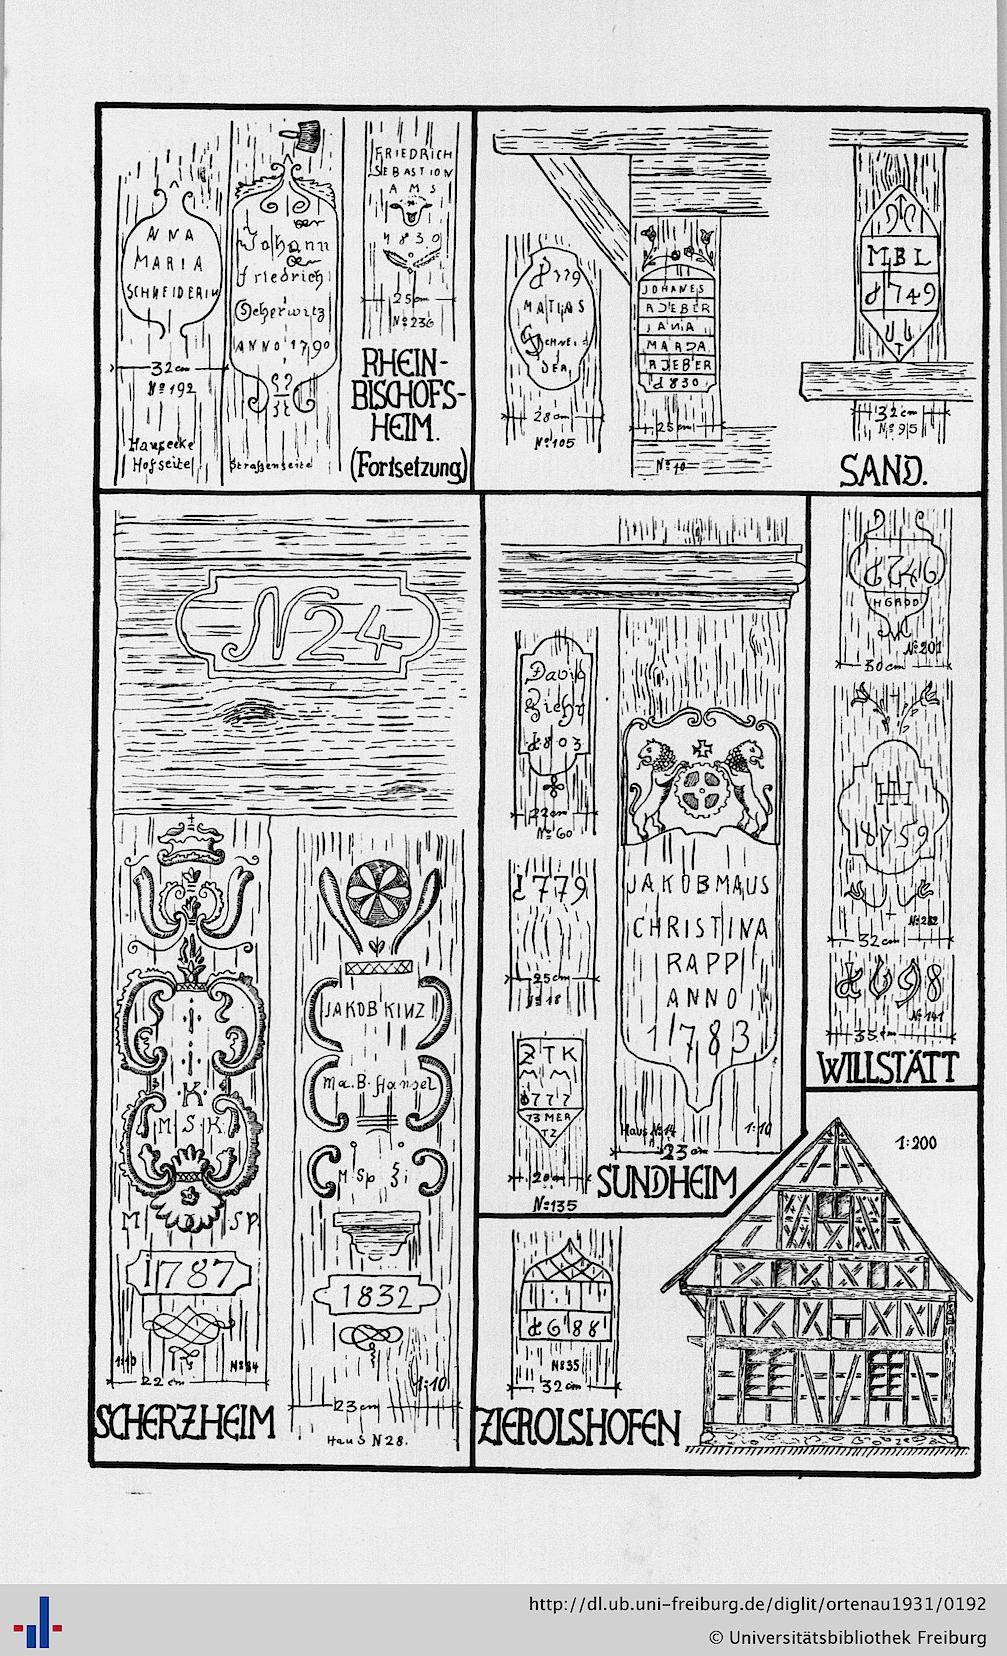 ANNA
MARIA
SCHNEIDERIN
32 cm
No 192
Hausecke
Hofseite
Johann
Friedrich
Scherwitz
ANNO 1790
Straßenseite
FRIEDRICH
SEBASTION
AMS
1830
25 cm
No 236
RHEIN-
BISCHOFS-
HEIM.
(Fortsetzung)
1779
MATIAS
SCHNEI
DER
28 cm
No 105
JOHANES
RIEBER
IANA
MARIA
RIEBER
1830
25 cm
No 10
MBL
1749
32 cm
No 95
SAND.
N 24
K
M S K
M SP
1787
1:10
No 84
22 cm
SCHERZHEIM
JAKOB KINZ
Ma. B. Hansel
M Sp
1832
1:10
23 cm
Haus N 28.
David
1803
22 cm
No 60
1779
25 cm
No 18
ZTK
1777
73 MER
TZ
20 cm
No 135
JAKOB MAUS
CHRISTINA
RAPP
ANNO
1783
Haus No 14
1:10
23 cm
SUNDHEIM
1746
No 201
30 cm
HH
1759
No 282
32 cm
1698
No 141
35 cm
WILLSTÄTT
1688
No 35
32 cm
ZIEROLSHOFEN
1:200
http://dl.ub.uni-freiburg.de/diglit/ortenau1931/0192
© Universitätsbibliothek Freiburg